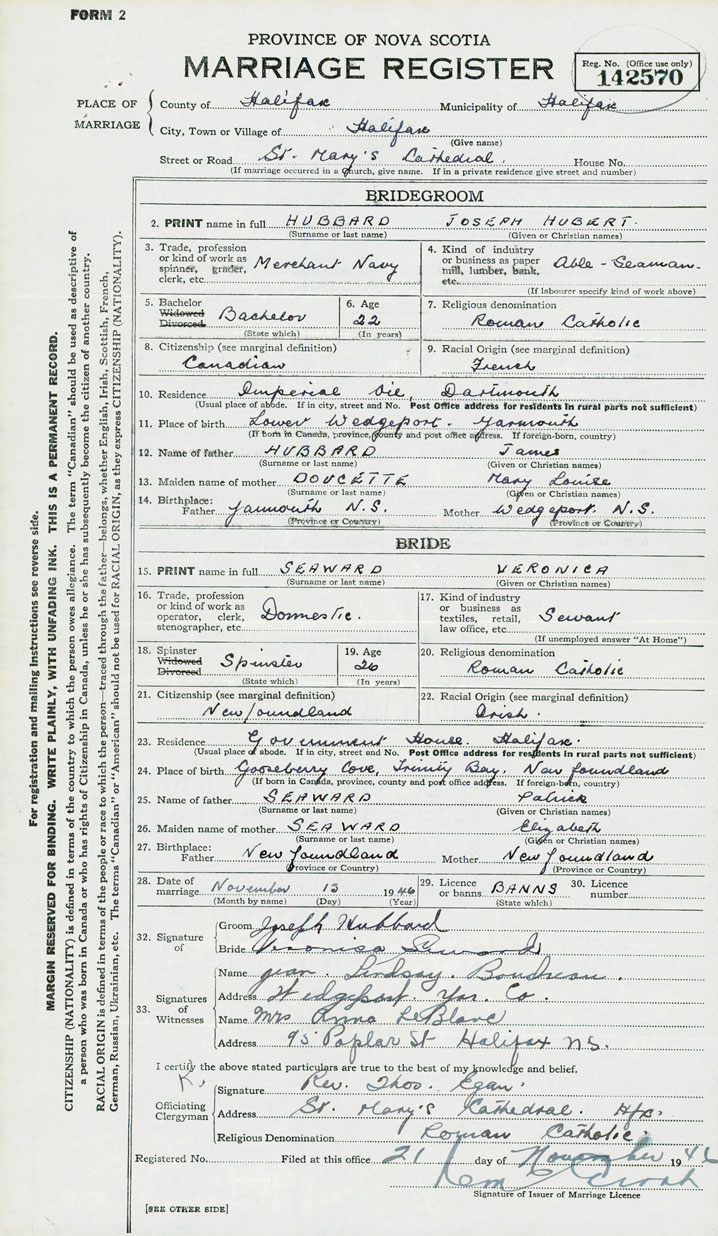 FORM 2
PROVINCE OF NOVA SCOTIA
MARRIAGE REGISTER
Reg. No. (Office use only)
142570
PLACE OF MARRIAGE
County of Halifax Municipality of Halifax
City, Town or Village of Halifax
(Give name)
Street or Road St. Mary's Cathedral. House No.
(If marriage occurred in a church, give name. If in a private residence give street and number)
BRIDEGROOM
2. PRINT name in full HUBBARD JOSEPH HUBERT.
(Surname or last name) (Given or Christian names)
3. Trade, profession or kind of work as spinner, grader, clerk, etc. Merchant Navy
4. Kind of industry or business as paper mill, lumber, bank, etc. Able - Seaman.
(If labourer specify kind of work above)
5. Bachelor Widowed Divorced Bachelor
(State which)
6. Age 22
(In years)
7. Religious denomination
Roman Catholic
8. Citizenship (see marginal definition)
Canadian
9. Racial Origin (see marginal definition)
French
10. Residence Imperial Oil, Dartmouth
(Usual place of abode. If in city, street and No. Post Office address for residents in rural parts not sufficient)
11. Place of birth Lower Wedgeport. Yarmouth
(If born in Canada, province, county and post office address. If foreign-born, country)
12. Name of father HUBBARD James
(Surname or last name) (Given or Christian names)
13. Maiden name of mother DOUCETTE Mary Louise
(Surname or last name) (Given or Christian names)
14. Birthplace: Father Yarmouth N.S. Mother Wedgeport N.S.
(Province or Country) (Province or Country)
BRIDE
15. PRINT name in full SEAWARD VERONICA
(Surname or last name) (Given or Christian names)
16. Trade, profession or kind of work as operator, clerk, stenographer, etc. Domestic.
17. Kind of industry or business as textiles, retail, law office, etc. Servant
(If unemployed answer "At Home")
18. Spinster Widowed Divorced Spinster
(State which)
19. Age 26
(In years)
20. Religious denomination
Roman Catholic
21. Citizenship (see marginal definition)
Newfoundland
22. Racial Origin (see marginal definition)
Irish.
23. Residence Government House, Halifax.
(Usual place of abode. If in city, street and No. Post Office address for residents in rural parts not sufficient)
24. Place of birth Gooseberry Cove, Trinity Bay, Newfoundland
(If born in Canada, province, county and post office address. If foreign-born, country)
25. Name of father SEAWARD Patrick
(Surname or last name) (Given or Christian names)
26. Maiden name of mother SEAWARD Elizabeth
(Surname or last name) (Given or Christian names)
27. Birthplace: Father Newfoundland Mother Newfoundland
(Province or Country) (Province or Country)
28. Date of marriage November 13 1946
(Month by name) (Day) (Year)
29. Licence or banns BANNS
(State which)
30. Licence number
32. Signature of
Groom Joseph Hubbard
Bride Veronica Seward
33. Signatures of Witnesses
Name Jean. Lindsay. Boudreau.
Address Wedgeport. Yar. Co.
Name Mrs Anna LeBlanc
Address 95 Poplar St Halifax N.S.
I certify the above stated particulars are true to the best of my knowledge and belief.
Officiating Clergyman
Signature Rev. Thos. Egan.
Address St. Mary's Cathedral. Hfx.
Religious Denomination Roman Catholic.
Registered No. Filed at this office 21 day of November 1946
Signature of Issuer of Marriage Licence
[SEE OTHER SIDE]
For registration and mailing instructions see reverse side.
MARGIN RESERVED FOR BINDING. WRITE PLAINLY, WITH UNFADING INK. THIS IS A PERMANENT RECORD.
CITIZENSHIP (NATIONALITY) is defined in terms of the country to which the person owes allegiance. The term "Canadian" should be used as descriptive of
a person who was born in Canada or who has rights of Citizenship in Canada, unless he or she has subsequently become the citizen of another country.
RACIAL ORIGIN is defined in terms of the people or race to which the person—traced through the father—belongs, whether English, Irish, Scottish, French,
German, Russian, Ukrainian, etc. The terms "Canadian" or "American" should not be used for RACIAL ORIGIN, as they express CITIZENSHIP (NATIONALITY).